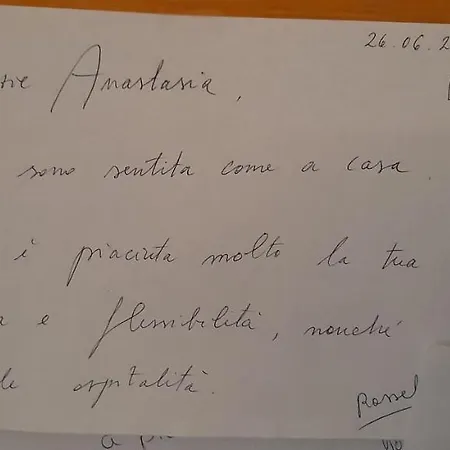 26.06.2
zie Anastasia,
sono sentita come a casa.
è piaciuta molto la tua
a e flessibilità, nonché
le ospitalità.
Rossel
a pi